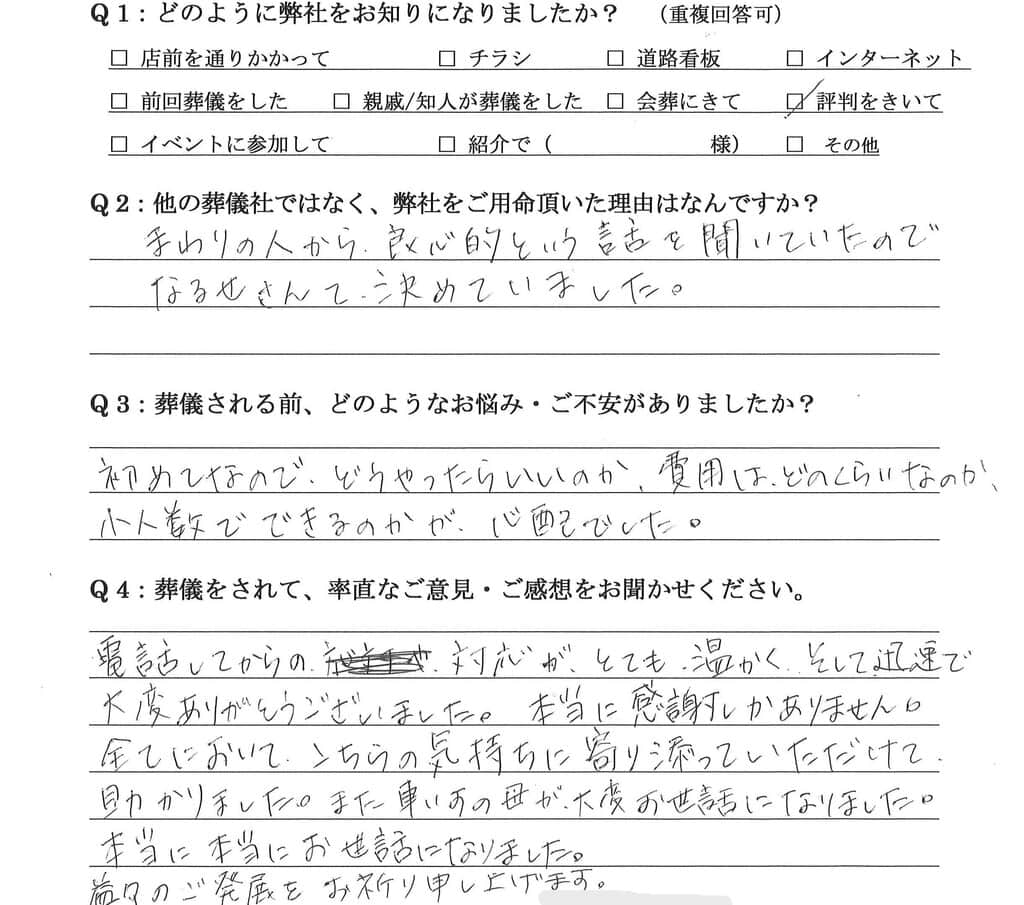 Q1：どのように弊社をお知りになりましたか？　（重複回答可）
□ 店前を通りかかって　□ チラシ　□ 道路看板　□ インターネット
□ 前回葬儀をした　□ 親戚/知人が葬儀をした　□ 会葬にきて　☑ 評判をきいて
□ イベントに参加して　□ 紹介で（　　　　　　　様）　□ その他
Q2：他の葬儀社ではなく、弊社をご用命頂いた理由はなんですか？
まわりの人から、良心的という話を聞いていたので
なるせさんて、決めていました。
Q3：葬儀される前、どのようなお悩み・ご不安がありましたか？
初めてなので、どうやったらいいのか、費用は、どのくらいなのか、
小人数でできるのかが、心配でした。
Q4：葬儀をされて、率直なご意見・ご感想をお聞かせください。
電話してからの、対応が、とても、温かく、そして迅速で
大変ありがとうございました。本当に感謝しかありません。
全てにおいて、こちらの気持ちに寄り添っていただけて、
助かりました。また車いすの母が、大変お世話になりました。
本当に本当にお世話になりました。
益々のご発展をお祈り申し上げます。